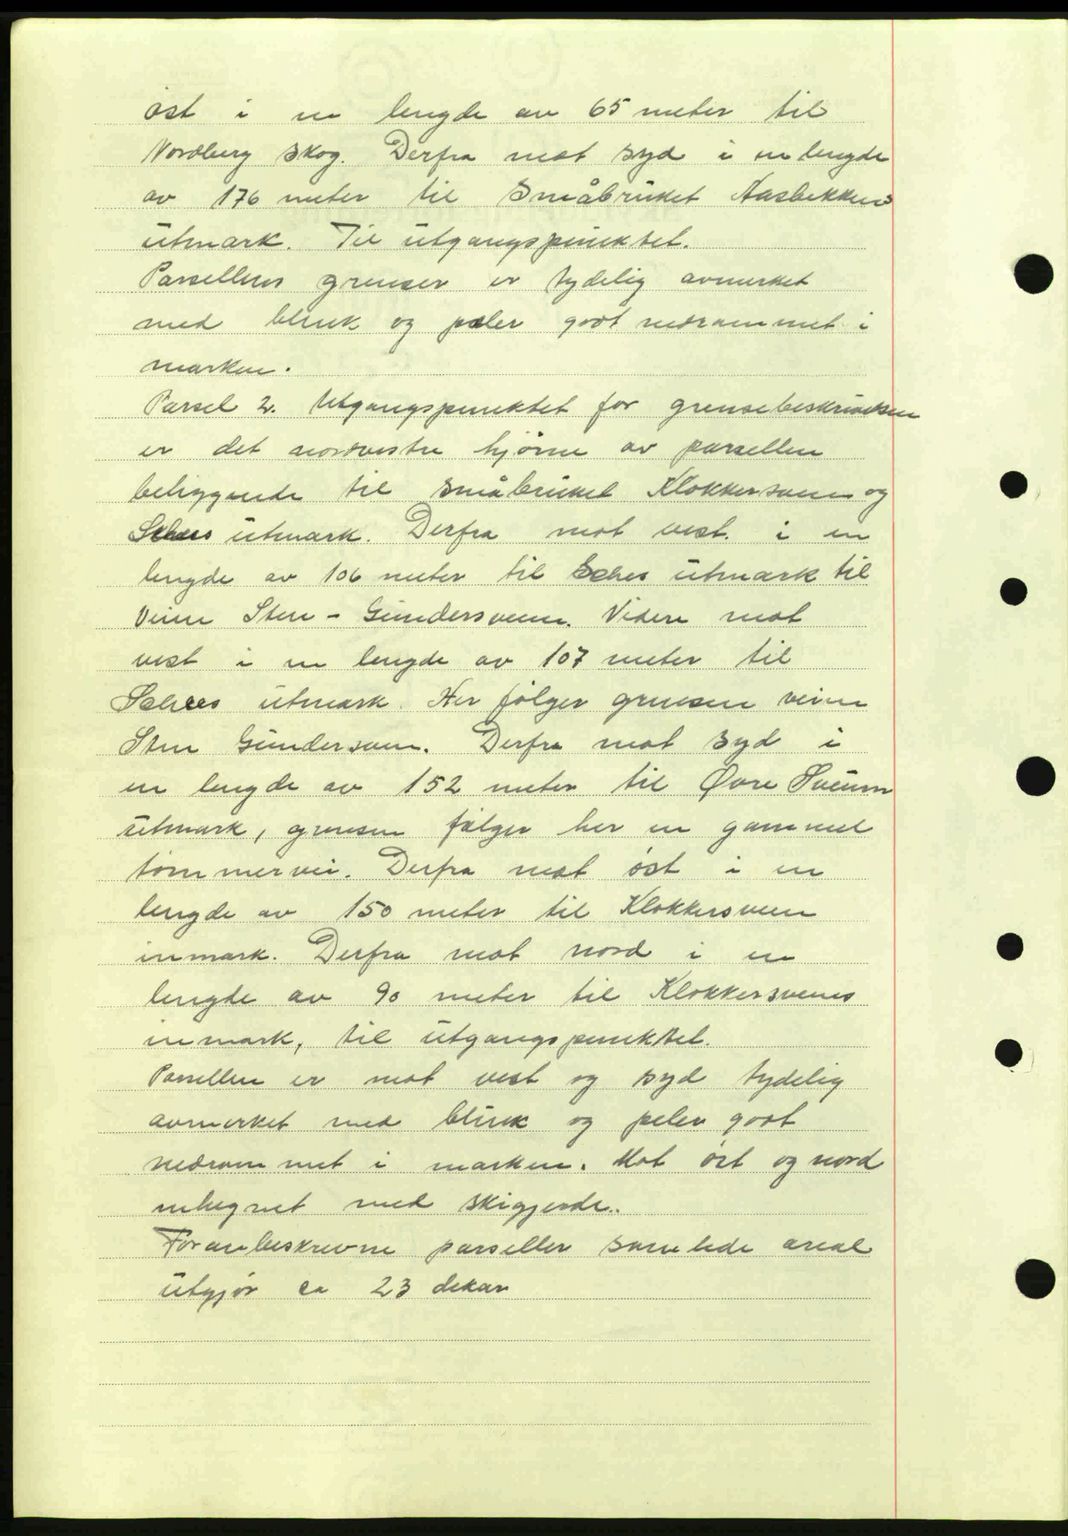 øst i en lengde av 65 meter til
Nordberg skog. Derfra mot syd i en lengde
av 176 meter til Småbruket Aasbekkens
utmark. Til utgangspunktet.
Parsellens grenser er tydelig avmerket
med blink og pæler godt nedrammet i
marken.
Parsel 2. Utgangspunktet for grensebeskrivelsen
er det nordvestre hjørne av parsellen
beliggende til småbruket Klokkersveen og
utmark. Derfra mot vest. i en
lengde av 106 meter til utmark til
Veien Sten - Gundersveen. Videre mot
vest i en lengde av 107 meter til
utmark. Her følger grensen veien
Sten Gundersveen. Derfra mot syd i
en lengde av 152 meter til Øvre Sveum
utmark, grensen følger her en gammel
tømmervei. Derfra mot øst i en
lengde av 150 meter til Klokkersveen
inmark. Derfra mot nord i en
lengde av 90 meter til Klokkersveens
inmark, til utgangspunktet.
Parsellen er mot vest og syd tydelig
avmerket med blink og peler godt
nedrammet i marken. Mot øst og nord
inhegnet med skigjerde.
Foranbeskrevne parseller samlede areal
utgjør ca 23 dekar